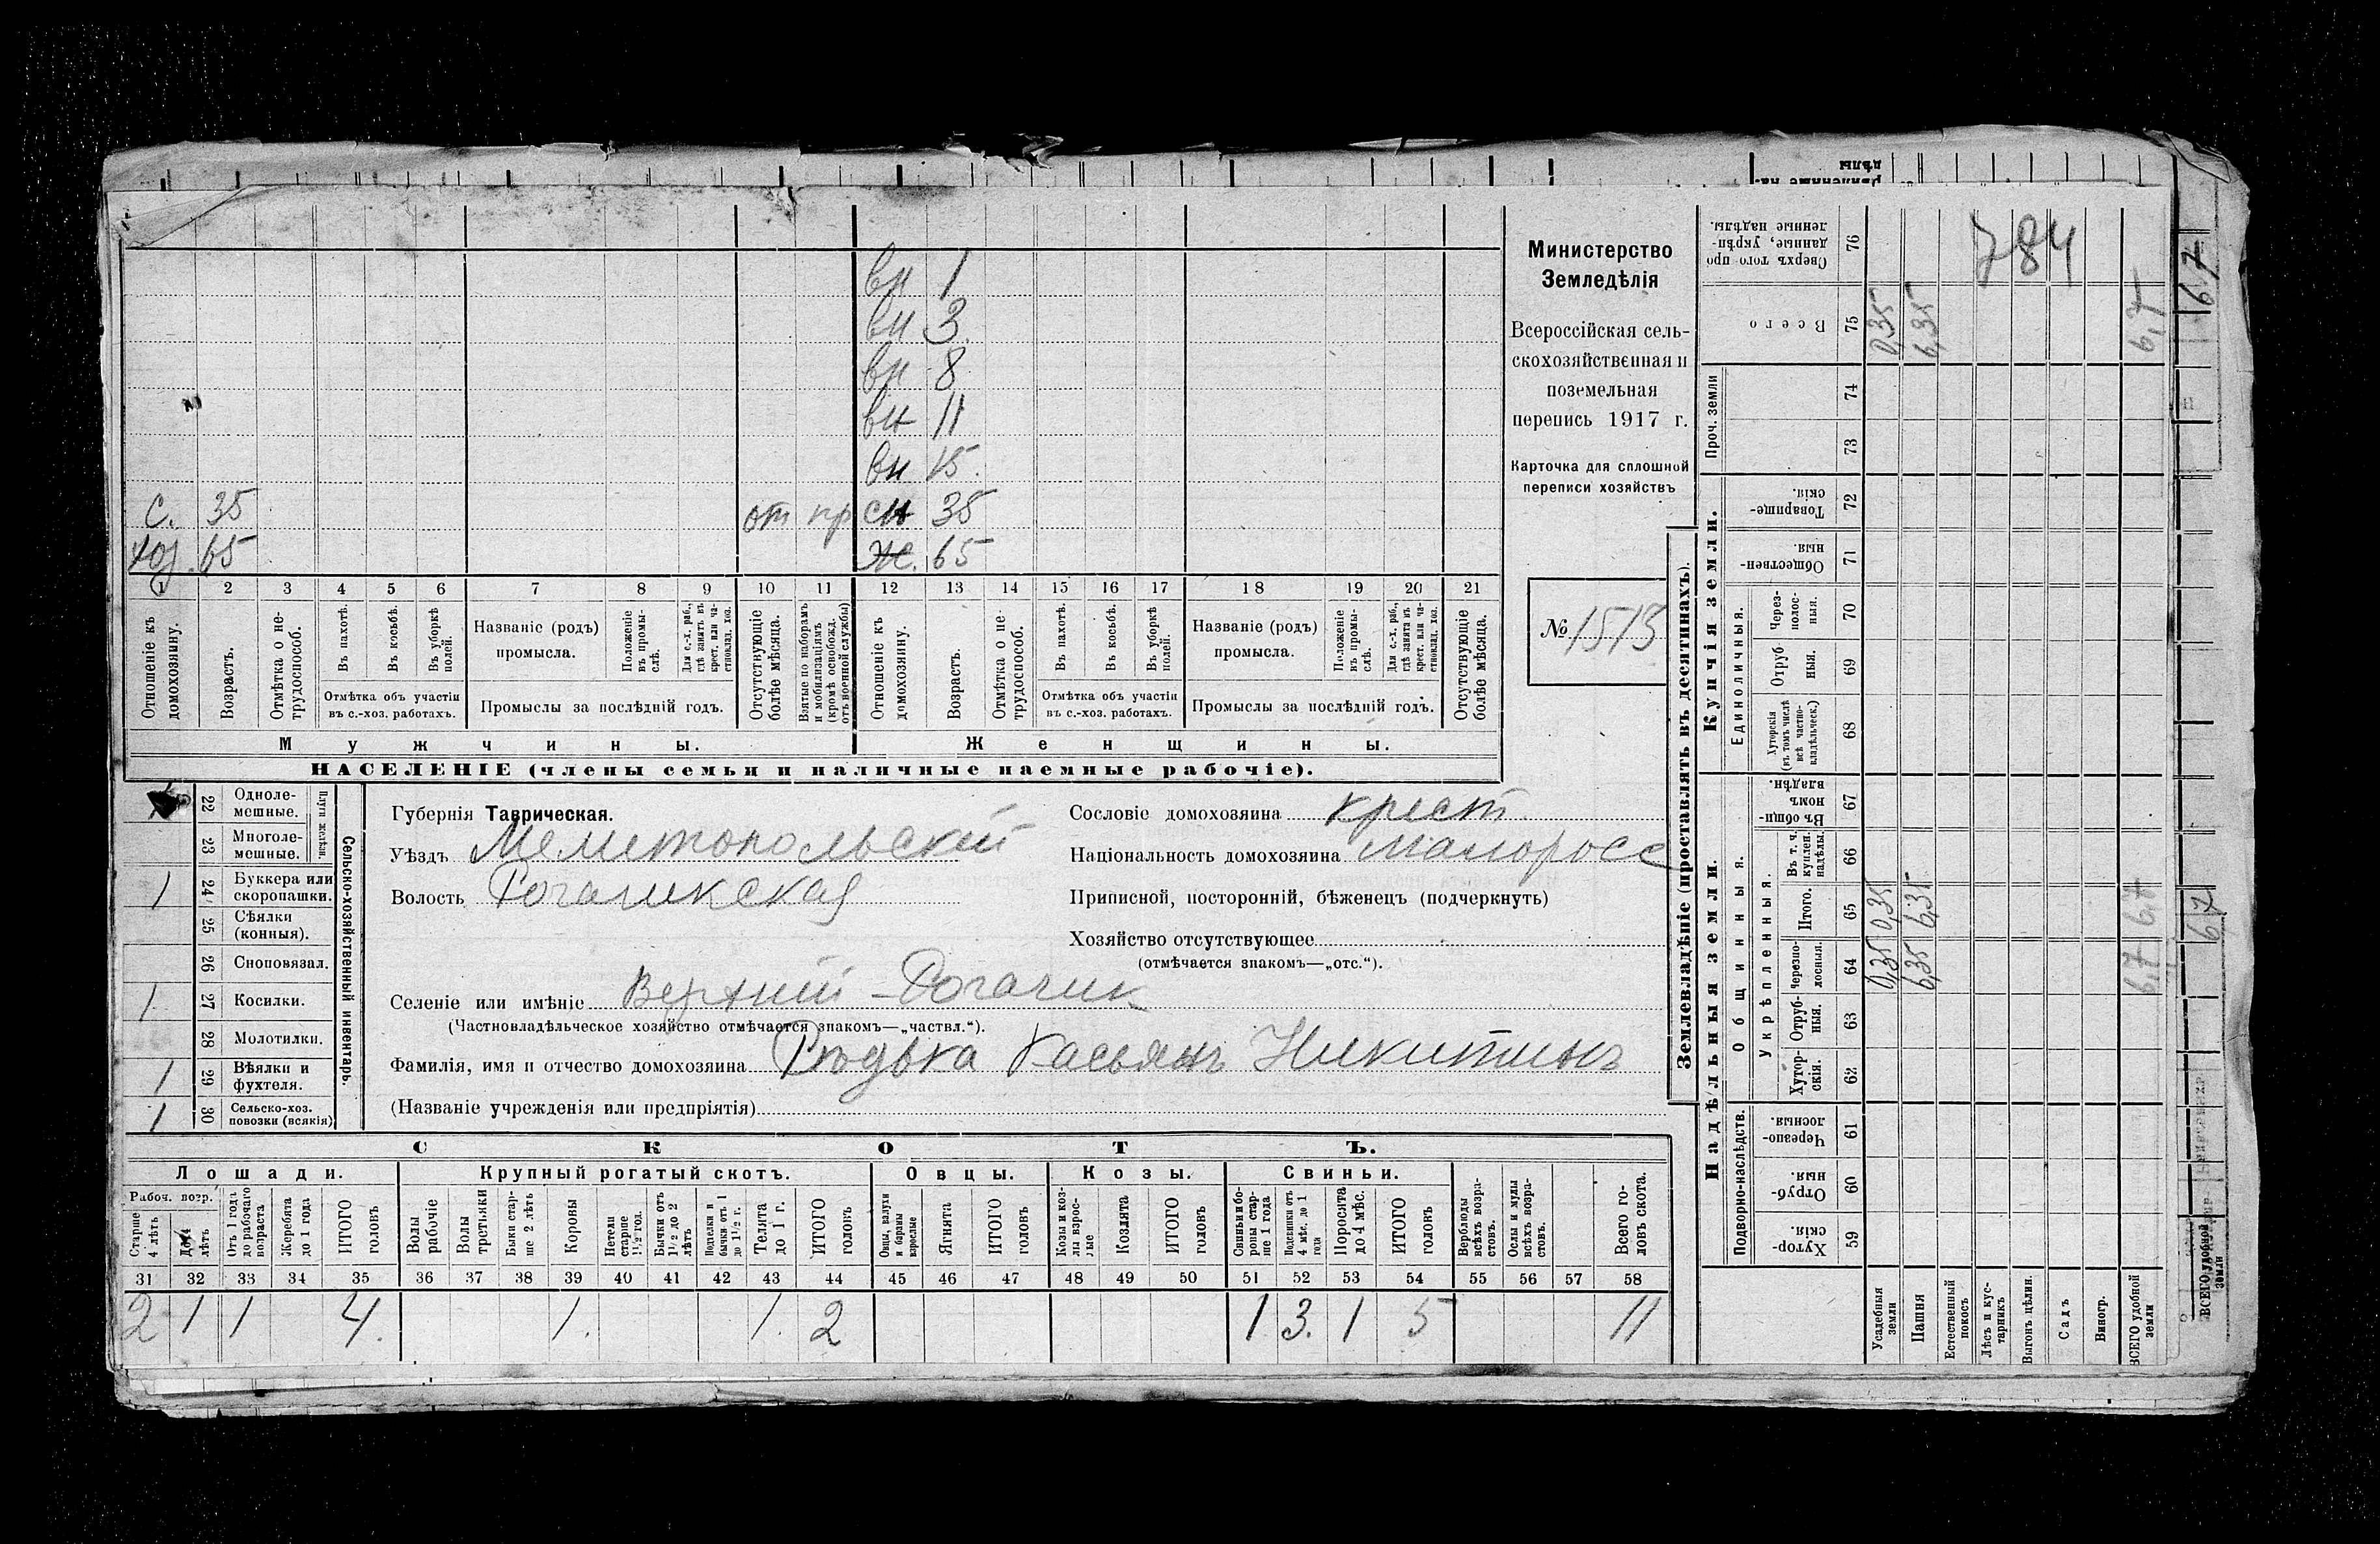 вн 1
вн 3
вн 8
вн 11
вн 15
С. 35 от пр сн 35
хоз. 65 Ж. 65
1 2 3 4 5 6 7 8 9 10 11 12 13 14 15 16 17 18 19 20 21
Отношеніе къ домохозяину.
Возрастъ.
Отмѣтка о нетрудоспособ.
Въ пахотѣ.
Въ косьбѣ.
Въ уборкѣ полей.
Отмѣтка объ участіи въ с.-хоз. работахъ.
Названіе (родъ) промысла.
Положеніе въ промыслѣ.
Для с.-х. раб., гдѣ занятъ въ крест. или частновлад. хоз.
Промыслы за послѣдній годъ.
Отсутствующіе болѣе мѣсяца.
Взятые по наборамъ и мобилизаціямъ (кромѣ освобожд. отъ военной службы)
Отношеніе къ домохозяину.
Возрастъ.
Отмѣтка о нетрудоспособ.
Въ пахотѣ.
Въ косьбѣ.
Въ уборкѣ полей.
Отмѣтка объ участіи въ с.-хоз. работахъ.
Названіе (родъ) промысла.
Положеніе въ промыслѣ.
Для с.-х. раб., гдѣ занятъ въ крест. или частновлад. хоз.
Промыслы за послѣдній годъ.
Отсутствующіе болѣе мѣсяца.
Мужчины. Женщины.
НАСЕЛЕНІЕ (члены семьи и наличные наемные рабочіе).
Министерство
Земледѣлія
Всероссійская сель-
скохозяйственная и
поземельная
перепись 1917 г.
Карточка для сплошной
переписи хозяйствъ
№
Сельско-хозяйственный инвентарь.
Плуги желѣзн.
22 Однолемешные.
23 Многолемешные.
1 24 Буккера или скоропашки.
25 Сѣялки (конныя).
26 Сноповязал.
1 27 Косилки.
28 Молотилки.
1 29 Вѣялки и фухтеля.
1 30 Сельско-хоз. повозки (всякія)
Губернія Таврическая.
Уѣздъ Мелитопольскій
Волость Рогачикская
Селеніе или имѣніе Верхній-Рогачик
(Частновладѣльческое хозяйство отмѣчается знакомъ—„частвл.“).
Фамилія, имя и отчество домохозяина Рѣдька Касьянъ Никитинъ
(Названіе учрежденія или предпріятія)
Сословіе домохозяина крест.
Національность домохозяина малоросс
Приписной, посторонній, бѣженецъ (подчеркнуть)
Хозяйство отсутствующее
(отмѣчается знакомъ—„отс.“).
СКОТЪ.
Лошади. Крупный рогатый скотъ. Овцы. Козы. Свиньи.
Рабоч. возр.
Старше 4 лѣтъ
До 4 лѣтъ
Отъ 1 года до рабочаго возраста
Жеребята до 1 года
ИТОГО головъ
Волы рабочіе
Волы третьяки
Быки старше 2 лѣтъ
Коровы
Нетели старше 1½ год.
Бычки отъ 1½ до 2 лѣтъ
Подтелки и бычки отъ 1 до 1½ г.
Телята до 1 г.
ИТОГО головъ
Овцы, валухи и бараны взрослые
Ягнята
ИТОГО головъ
Козы и козлы взрослые
Козлята
ИТОГО головъ
Свиньи и бороны старше 1 года
Подсвинки отъ 4 мѣс. до 1 года
Поросята до 4 мѣс.
ИТОГО головъ
Верблюды всѣхъ возрастовъ.
Ослы и мулы всѣхъ возрастовъ.
Всего головъ скота.
31 32 33 34 35 36 37 38 39 40 41 42 43 44 45 46 47 48 49 50 51 52 53 54 55 56 57 58
2 1 1 4. 1. 1. 2 1 3. 1 5 11
Землевладѣніе (проставлять въ десятинахъ).
Надѣльныя земли. Купчія земли. Проч. земли
Подворно-наслѣдств. Общинныя. Единоличныя.
Укрѣпленныя.
Хуторскія. 59
Отрубныя. 60
Черезполосныя. 61
Хуторскія. 62
Отрубныя. 63
черезполосныя. 64
Итого. 65
Въ т. ч. куплен. надѣлы. 66
Въ общинномъ владѣн. 67
Хуторскія (въ томъ числѣ всѣ частновладѣльческ.) 68
Отрубныя. 69
Черезполосныя. 70
Общественныя. 71
Товарищескія. 72
73
74
Всего 75
Сверхъ того проданные, укрѣпленные надѣлы. 76
784
Усадебныя земли 0,35 0,35 0,35
Пашня 6,35 6,35 6,35
Естественный покосъ
Лѣсъ и кустарникъ
Выгонъ цѣлин.
Садъ
Виногр.
ВСЕГО удобной земли 6,7 6,7 6,7
ВСЕГО удобной земли 6,7 6,7